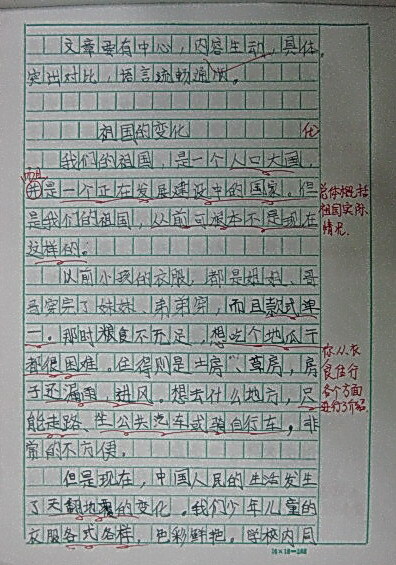 文章要有中心，内容生动，具体，
突出对比，语言流畅通顺。
祖国的变化
化
我们的祖国，是一个人口大国，
也是一个正在发展建设中的国家。但
是我们的祖国，从前可根本不是现在
这样的。
总体概括
祖国实际
情况.
以前小孩的衣服，都是姐姐、哥
哥穿完了妹妹、弟弟穿，而且款式单
一。那时粮食不充足，想吃个地瓜干
都很困难。住得则是土房、草房，房
子还漏雨、进风。想去什么地方，只
能走路、坐公共汽车或骑自行车，非
常的不方便。
你从衣
食住行
各个方面
进行了介绍.
但是现在，中国人民的生活发生
了天翻地覆的变化。我们少年儿童的
衣服各式各样，色彩鲜艳。学校内同